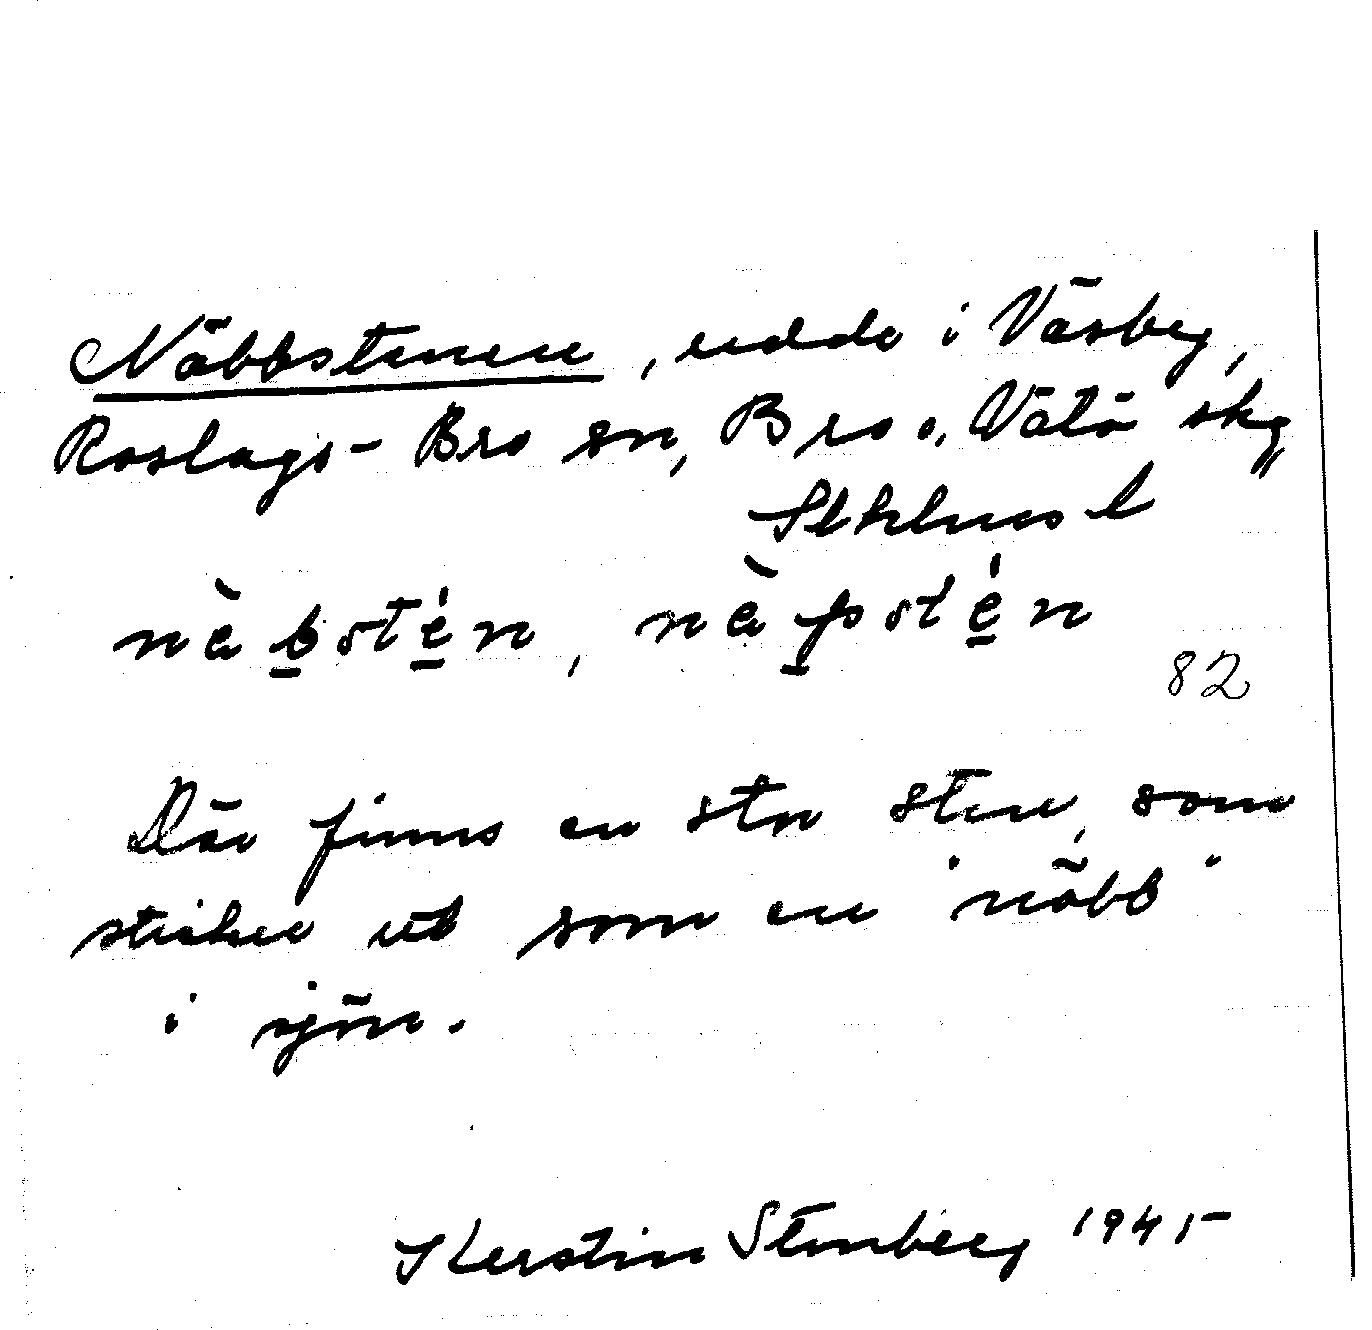 Näbbstenen, udde i Väsby,
Roslags-Bro sn, Bro o. Vätö skg
Sthlms l
nä̀bsté̱n, nä̀psté̱n
82
Där finns en stor sten, som
sticker ut som en "näbb"
i sjön.
Kerstin Stenberg 1945